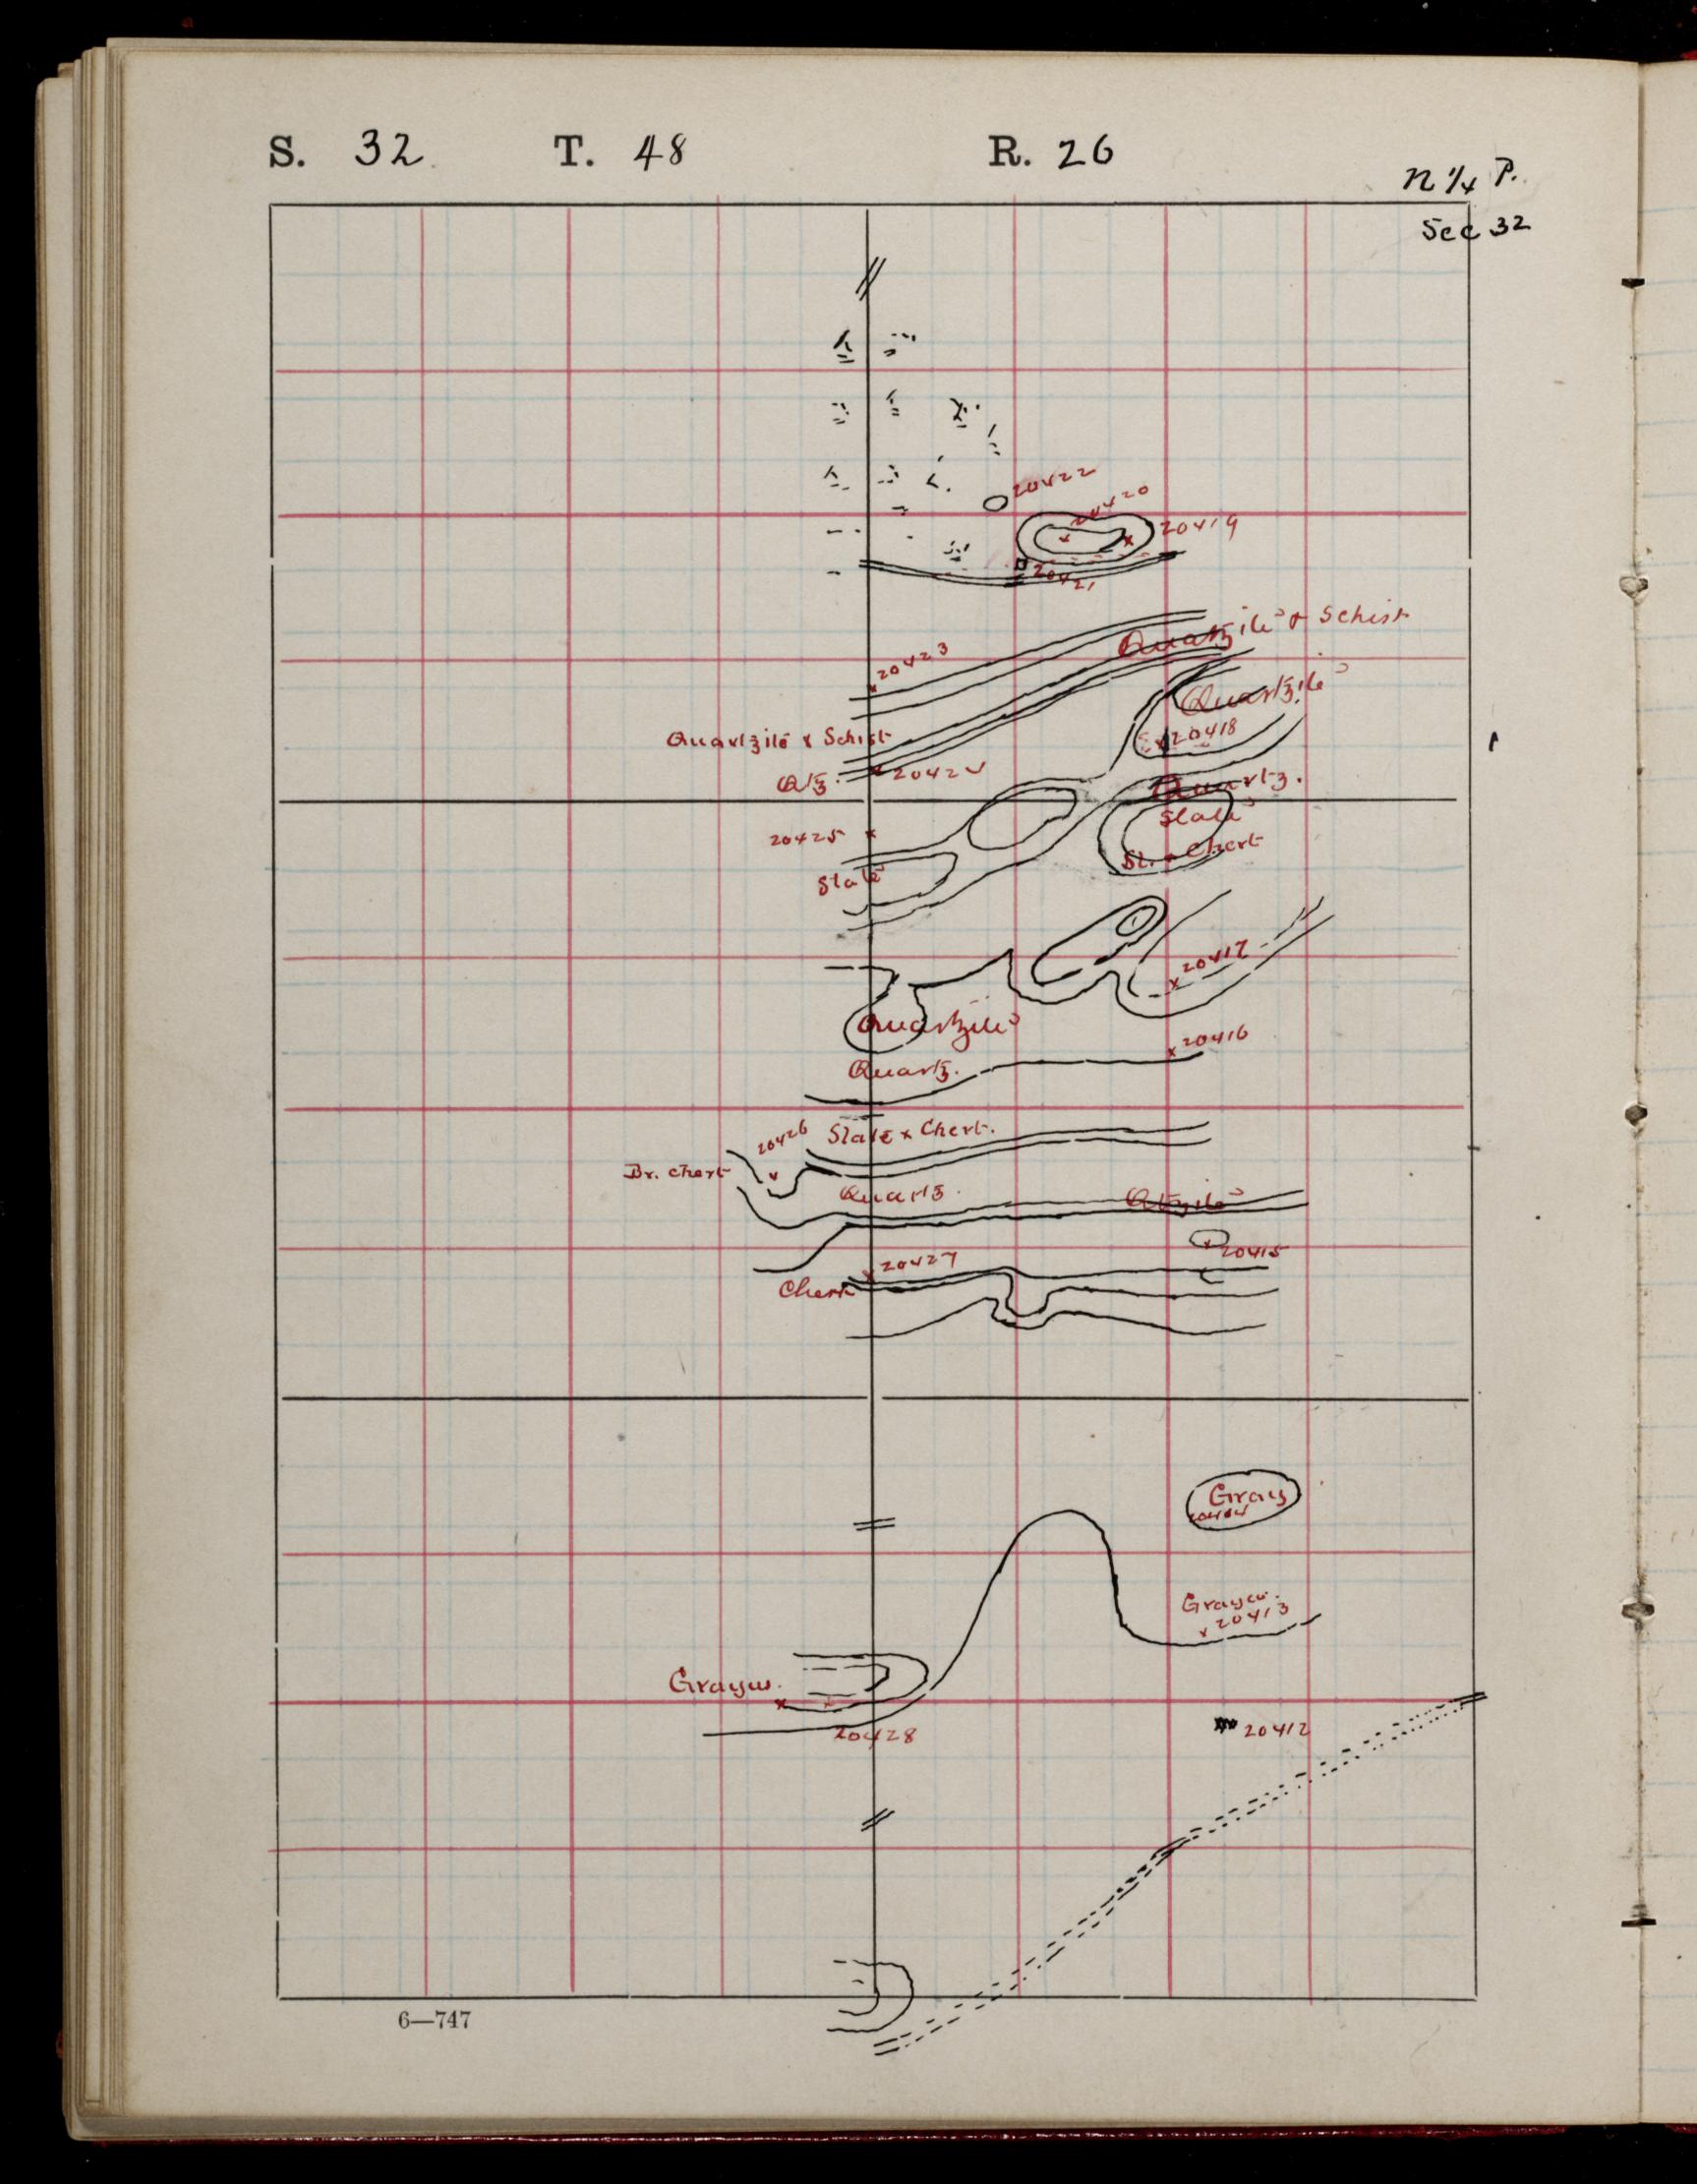 S. 32 T. 48 R. 26
N 1/4 P.
Sec 32
20422
20420
20419
20421
Quartzite & Schist
20423
Quartzite
Quartzite & Schist
20418
Qtz.
20424
Quartz.
20425
Slate
Sl. & Chert
Slate
20417
Quartzite
20416
Quartz.
20426
Slate & Chert.
Br. Chert
Quartz.
Qtzite
20415
20427
Chert
Gray
Grayw.
20413
Grayw.
20412
20428
6—747